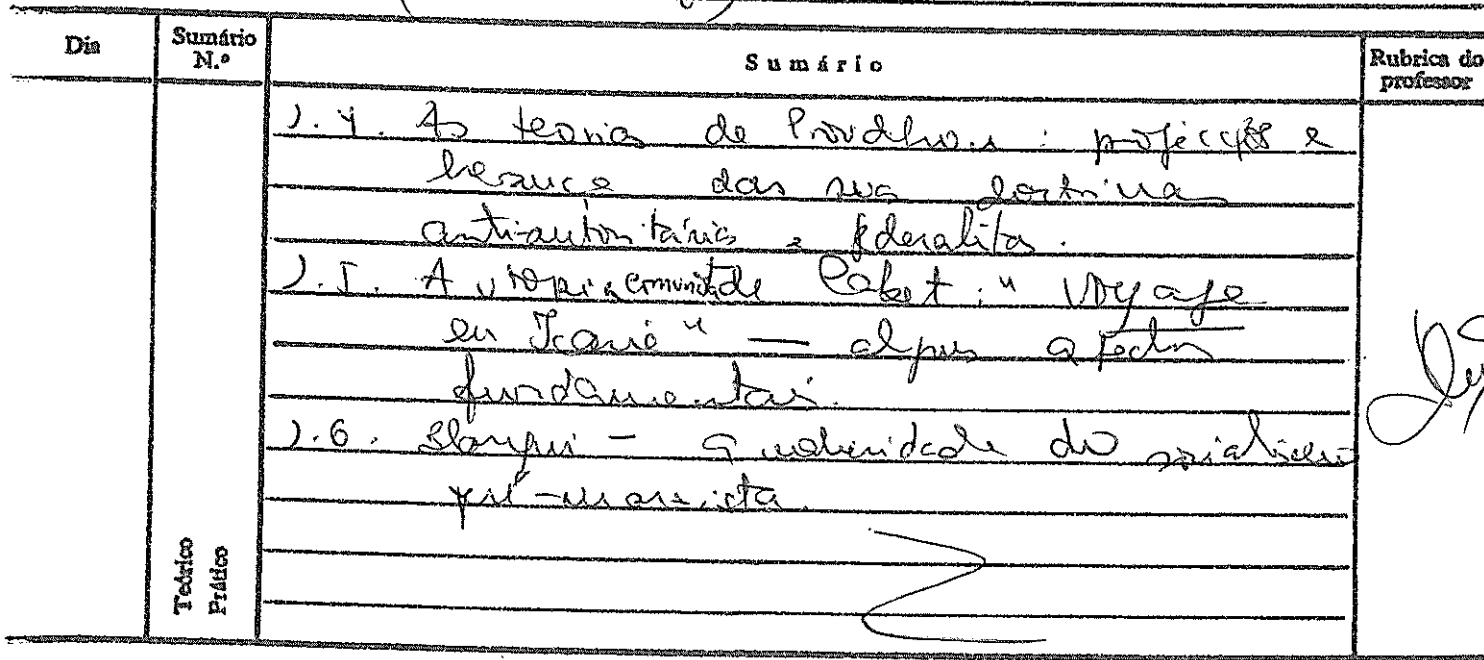 Dia
Sumário N.º
Sumário
Rubrica do professor
).4. As teorias de Proudhon : projecções e
herança das sua doutrina
anti-autoritária e federalista.
).5. A utopia comunista de Cabet : " Voyage
en Icarie " — alguns aspectos
fundamentais.
).6. Blanqui - a maturidade do socialismo
pré-marxista.
Teórico
Prático